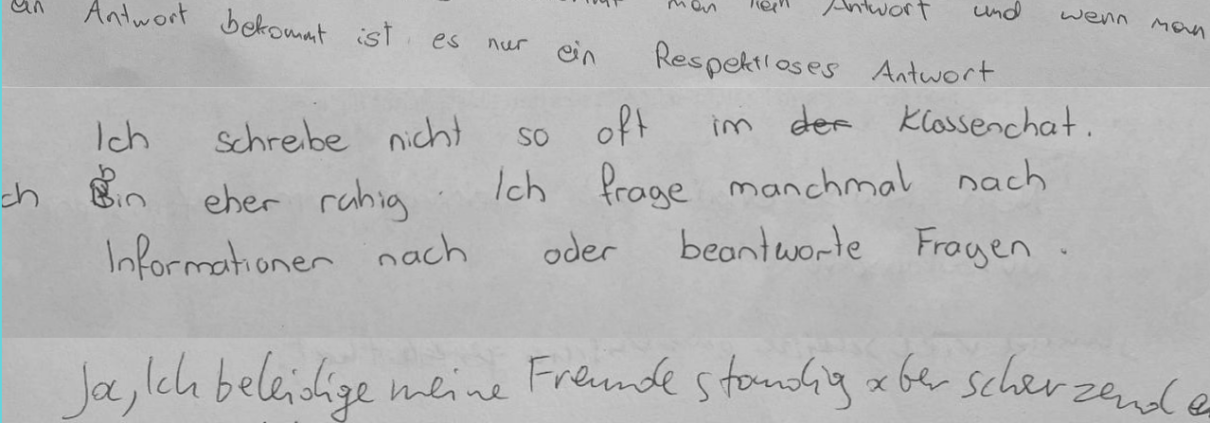 man kein Antwort und wenn man
ein Antwort bekommt ist es nur ein Respektloses Antwort
Ich schreibe nicht so oft im der Klassenchat.
ch bin eher ruhig. Ich frage manchmal nach
Informationen nach oder beantworte Fragen.
Ja, Ich beleidige meine Freunde standig aber scherzend